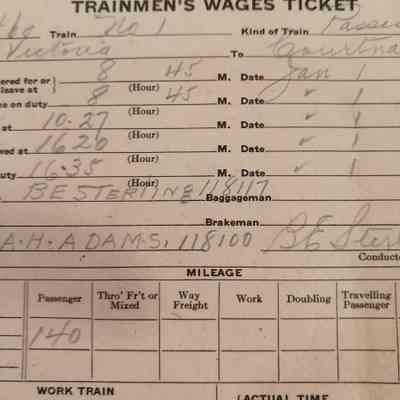 TRAINMEN'S WAGES TICKET
Train No 1 Kind of Train Passen
Victoria To Courtna
ered for or leave at } 8 45 M. Date Jan 1
(Hour)
e on duty 8 45 M. Date ✓ 1
(Hour)
at 10.27 M. Date ✓ 1
(Hour)
ved at 16 20 M. Date ✓ 1
(Hour)
uty 16.35 M. Date ✓ 1
(Hour)
BE STERLING 118117 Baggageman
Brakeman
A.H.ADAMS, 118100 BE Sterl
Conducto
MILEAGE
Passenger Thro' Fr't or Mixed Way Freight Work Doubling Travelling Passenger
140
WORK TRAIN (ACTUAL TIME